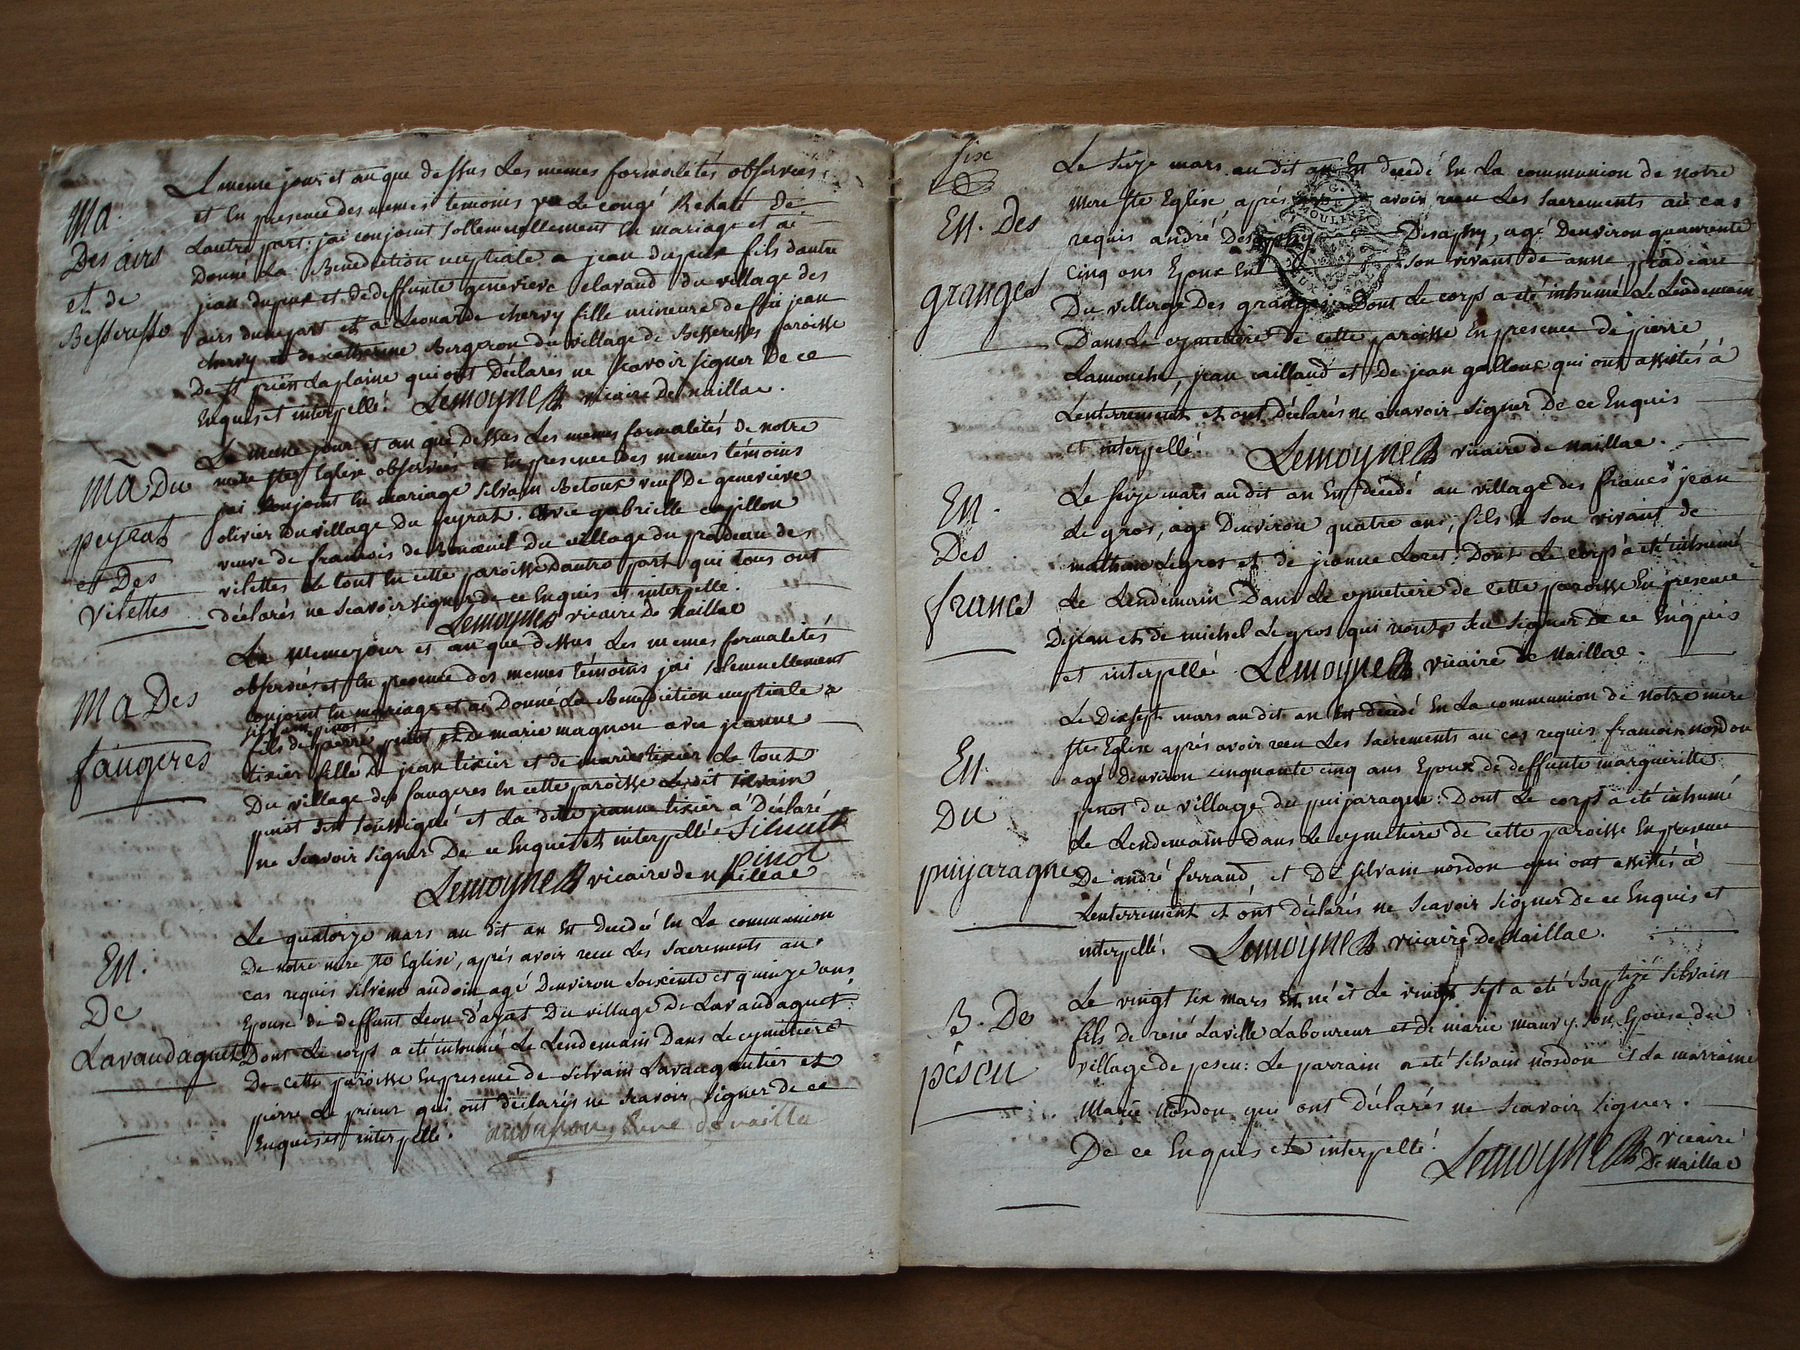 Le meme jour et an que dessus Les memes formalités observées
Ma.
Des airs
et de
Besseresse
et En presence des memes temoins vu Le congé Relaté de
Lautre part. jai conjoint sollemnellement En mariage et ai
Donné La Benediction nuptiale a jean dupeux fils dautre
jean dupeux et de deffunte genevieve clavaud du village des
airs dune part et a Leonarde chervy fille mineure de feu jean
chervy et de catherine Bergeron du village de Besseresses paroisse
De St prien Laplaine qui ont Déclarés ne scavoir signer De ce
Enquis et interpellé. Lemoyne vicaire De naillac.
Ma Du
peyrat
et Des
vilettes
Le meme jour et an que Dessus Les memes formalités de notre
mere ste Eglise observées et En presence des memes témoins
jai Conjoint En mariage silvain Betoux veuf De genevieve
olivier Du village Du peyrat. avec gabrielle
veuve de francois de du village du pradeau des
vilettes Le tout En cette paroisse dautre part qui tous ont
déclarés ne scavoir signer de ce Enquis et interpellé.
Lemoyne vicaire De Naillac
Ma Des
faugeres
Le meme jour et an que dessus Les memes formalités
observées et En presence des memes témoins jai solemnellement
conjoint En mariage et ai Donné La Benediction nuptiale a
silvain pinot
fils de pierre pinot et de marie magnon avec jeanne
tixier fille de jean tixier et de marie tixier Le tout
Du village des faugeres En cette paroisse Ledit silvain
pinot sest soussigné et La dite jeanne tixier a Déclaré
ne scavoir signer De ce Enquis et interpellé. Silvain
pinot
Lemoyne vicaire de naillac
En.
De
Lavaudaguet
Le quatorze mars au dit an Est Decedé En La communion
De notre mere ste Eglise, après avoir recu Les sacrements au
cas requis silvene audoin agé Denviron soixente et quinze ans
Epouse de deffunt Leon dajat Du village De Lavaudaguet.
Dont Le corps a eté inhumé Le Lendemain Dans Le cymetiere
De cette paroisse En presence de silvain Lavaugautier et
pierre Le prieur qui ont déclarés ne scavoir signer de ce
Enquis et interpellé. curé de naillac
six
En. Des
granges
Le seize mars au dit an Est decedé En La communion de notre
mere ste Eglise, après avoir recu Les sacrements au cas
requis andré Desaphy, agé Denviron quarente
cinq ans Epoux En son vivant de anne
Du village Des granges. Dont Le corps a eté inhumé Le Lendemain
Dans Le cymetiere De cette paroisse En presence De pierre
Lamouche, jean caillaud et De jean galloux qui ont assistés à
Lenterrement et ont déclarés ne scavoir signer De ce Enquis
et interpellé. Lemoyne vicaire de naillac.
G.
MOULINS
En.
Des
francs
Le seize mars au dit an Est décédé au village des francs jean
Le gros, agé Denviron quatre ans, fils En son vivant de
mathieu Legros et de jeanne Loret. Dont Le corps a eté inhumé
Le Lendemain Dans Le cymetiere de cette paroisse En presence
De jean et de michel Legros qui nont su signer De ce Enquis
et interpellé Lemoyne vicaire de Naillac.
En
Du
puijaragne
Le Dix sept mars au dit an Est decedé En La communion de notre mere
ste Eglise après avoir recu Les sacrements au cas requis francois nordon
agé Denviron cinquante cinq ans Epoux de deffunte margueritte
pinot du village du puijaragne: Dont Le corps a été inhumé
Le Lendemain Dans Le cymetiere de cette paroisse En presence
De andré ferrand et De silvain nordon qui ont assistés à
Lenterrement et ont déclarés ne scavoir signer De ce Enquis et
interpellé. Lemoyne vicaire De Naillac.
B. De
péseu
Le vingt six mars Est né et Le vingt sept a eté Baptizé silvain
fils de rené Laville Laboureur et de marie maury son Epouse du
village de peseu: Le parrain a eté silvain nordon et La marraine
Marie Nordon qui ont Déclarés ne scavoir signer.
De ce Enquis et interpellé. Lemoyne vicaire
De naillac